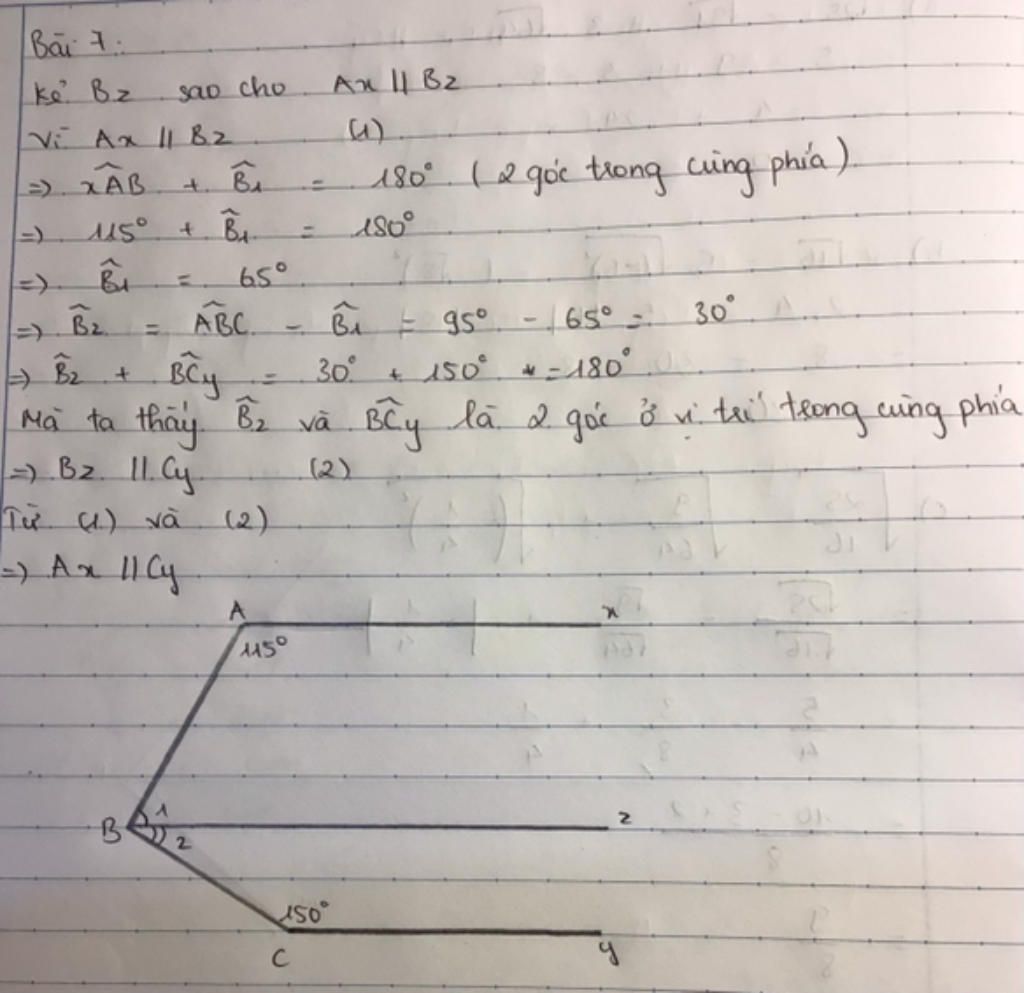 Bài 7:
Kẻ Bz sao cho Ax // Bz
Vì Ax // Bz (1)
=> xÂB + B̂1 = 180° (2 góc trong cùng phía)
=> 115° + B̂1 = 180°
=> B̂1 = 65°
=> B̂2 = ABC̑ - B̂1 = 95° - 65° = 30°
=> B̂2 + BĈy = 30° + 150° = 180°
Mà ta thấy B̂2 và BĈy là 2 góc ở vị trí trong cùng phía
=> Bz // Cy (2)
Từ (1) và (2)
=> Ax // Cy
A x
115°
B 1 z
2
150°
C y